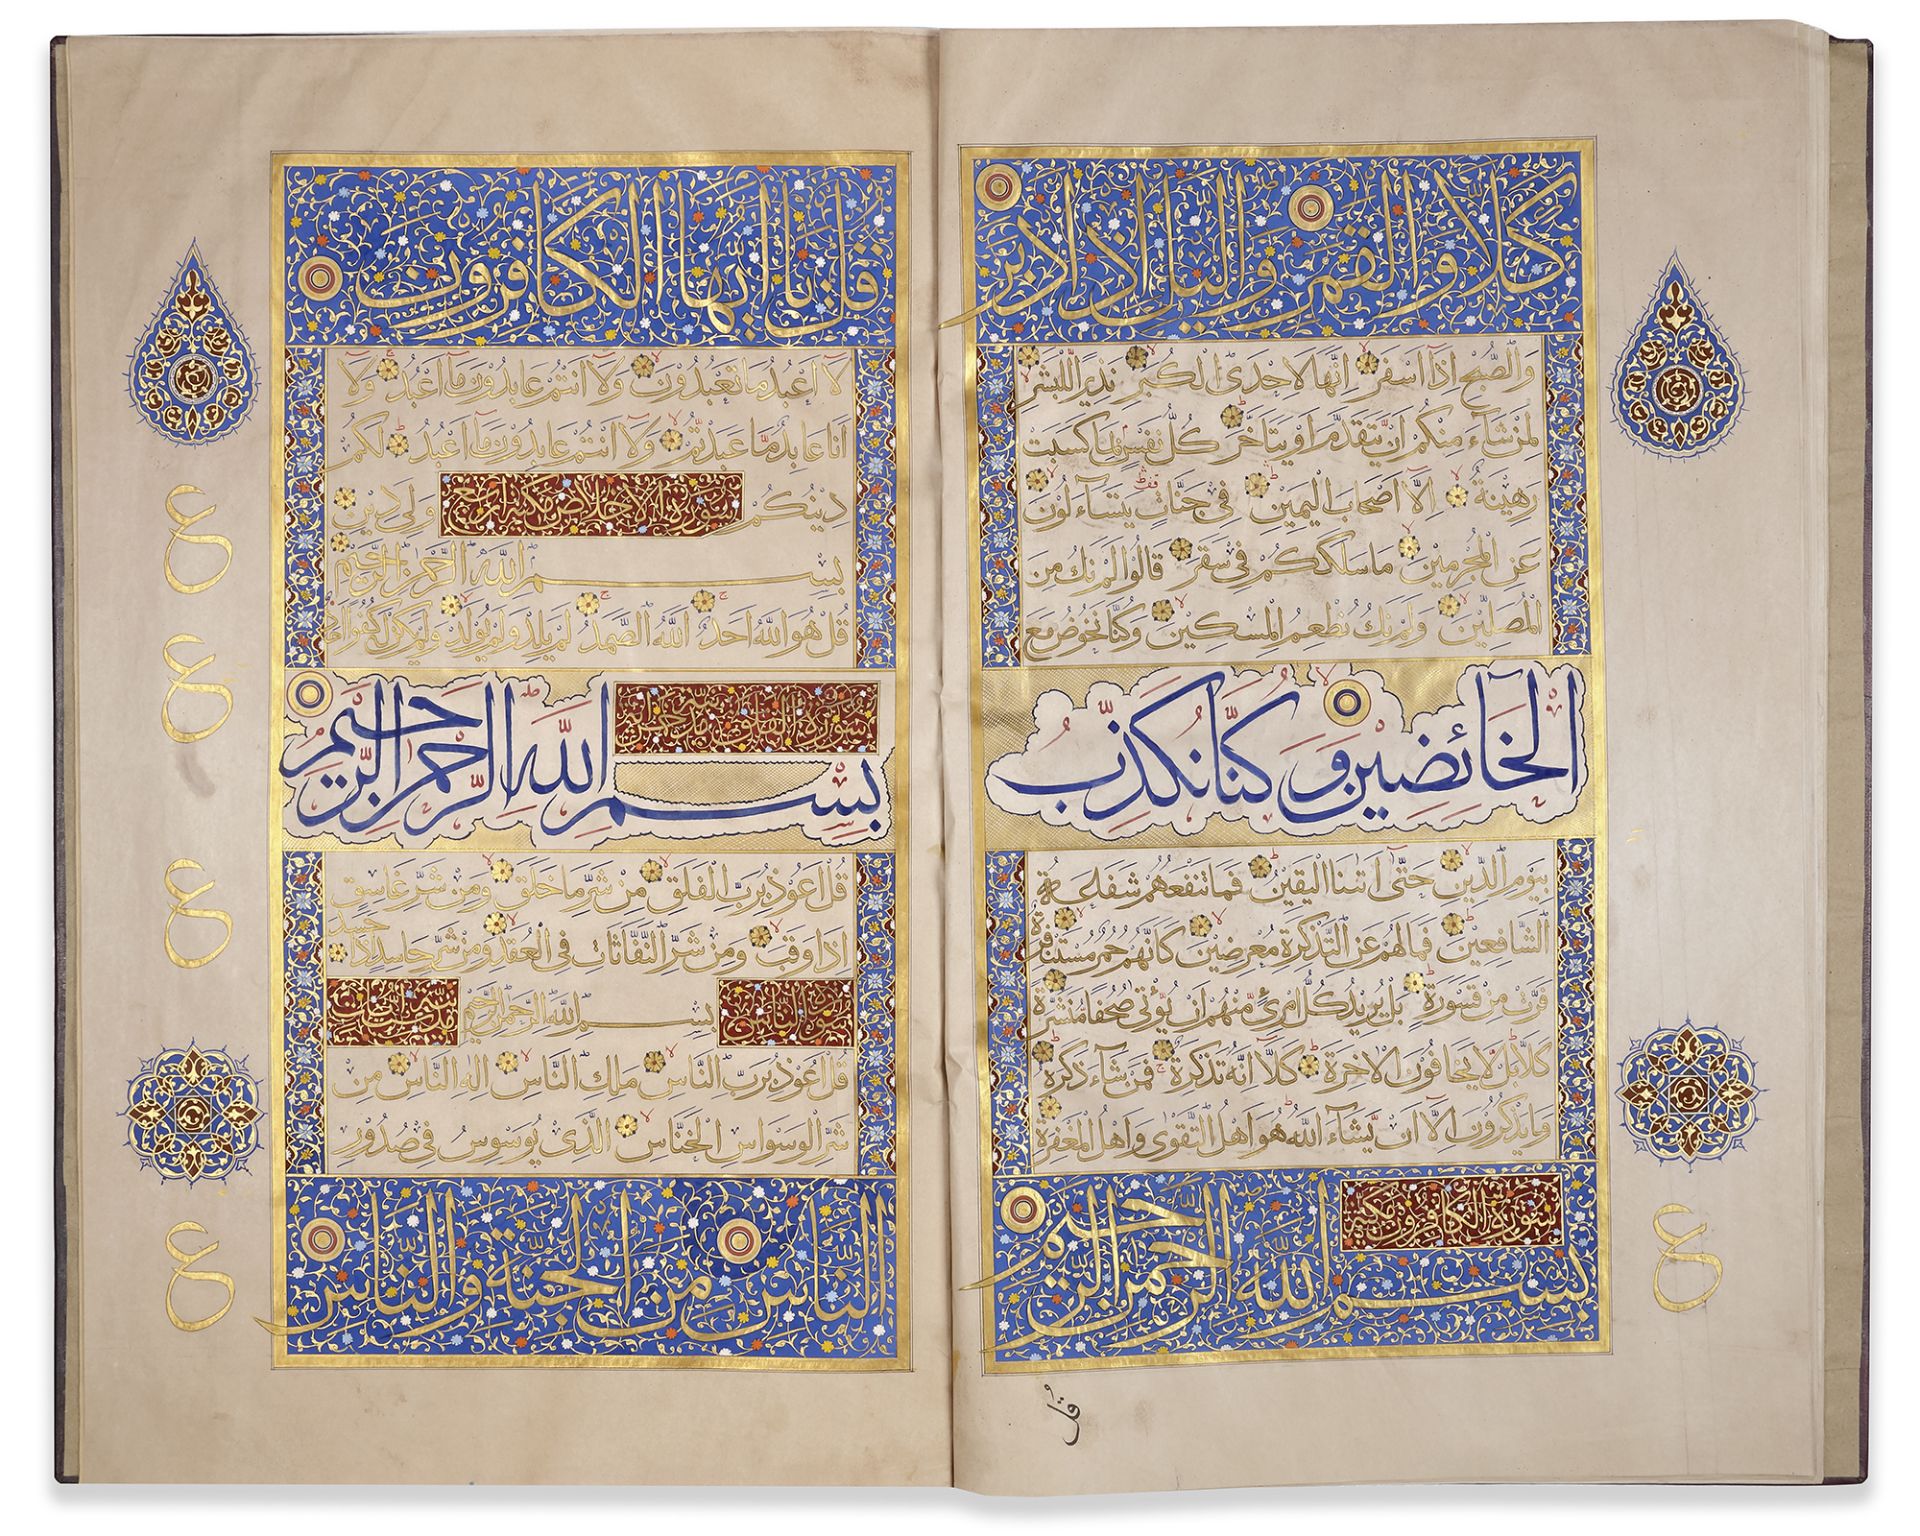 كلا والقمر واليل اذ ادبر
والصبح اذا اسفر انها لاحدى الكبر نذيرا للبشر
لمن شاء منكم ان يتقدم او يتاخر كل نفس بما كسبت
رهينة الا اصحاب اليمين في جنات يتساءلون
عن المجرمين ما سلككم في سقر قالوا لم نك من
المصلين ولم نك نطعم المسكين وكنا نخوض مع
الخائضين وكنا نكذب
بيوم الدين حتى اتينا اليقين فما تنفعهم شفاعة
الشافعين فما لهم عن التذكرة معرضين كانهم حمر مستنفرة
فرت من قسورة بل يريد كل امرئ منهم ان يؤتى صحفا منشرة
كلا بل لا يخافون الاخرة كلا انه تذكرة فمن شاء ذكره
وما يذكرون الا ان يشاء الله هو اهل التقوى واهل المغفرة
سورة الكافرون مكية
بسم الله الرحمن الرحيم
ع
قل
قل يا ايها الكافرون
لا اعبد ما تعبدون ولا انتم عابدون ما اعبد ولا
انا عابد ما عبدتم ولا انتم عابدون ما اعبد لكم
دينكم ولي دين
سورة الاخلاص مكية اربع
بسم الله الرحمن الرحيم
قل هو الله احد الله الصمد لم يلد ولم يولد ولم يكن له كفوا احد
سورة الفلق
بسم الله الرحمن الرحيم
قل اعوذ برب الفلق من شر ما خلق ومن شر غاسق
اذا وقب ومن شر النفاثات في العقد ومن شر حاسد اذا حسد
سورة الناس
بسم الله الرحمن الرحيم
قل اعوذ برب الناس ملك الناس اله الناس من
شر الوسواس الخناس الذي يوسوس في صدور
الناس من الجنة والناس
ع
ع
ع
ع